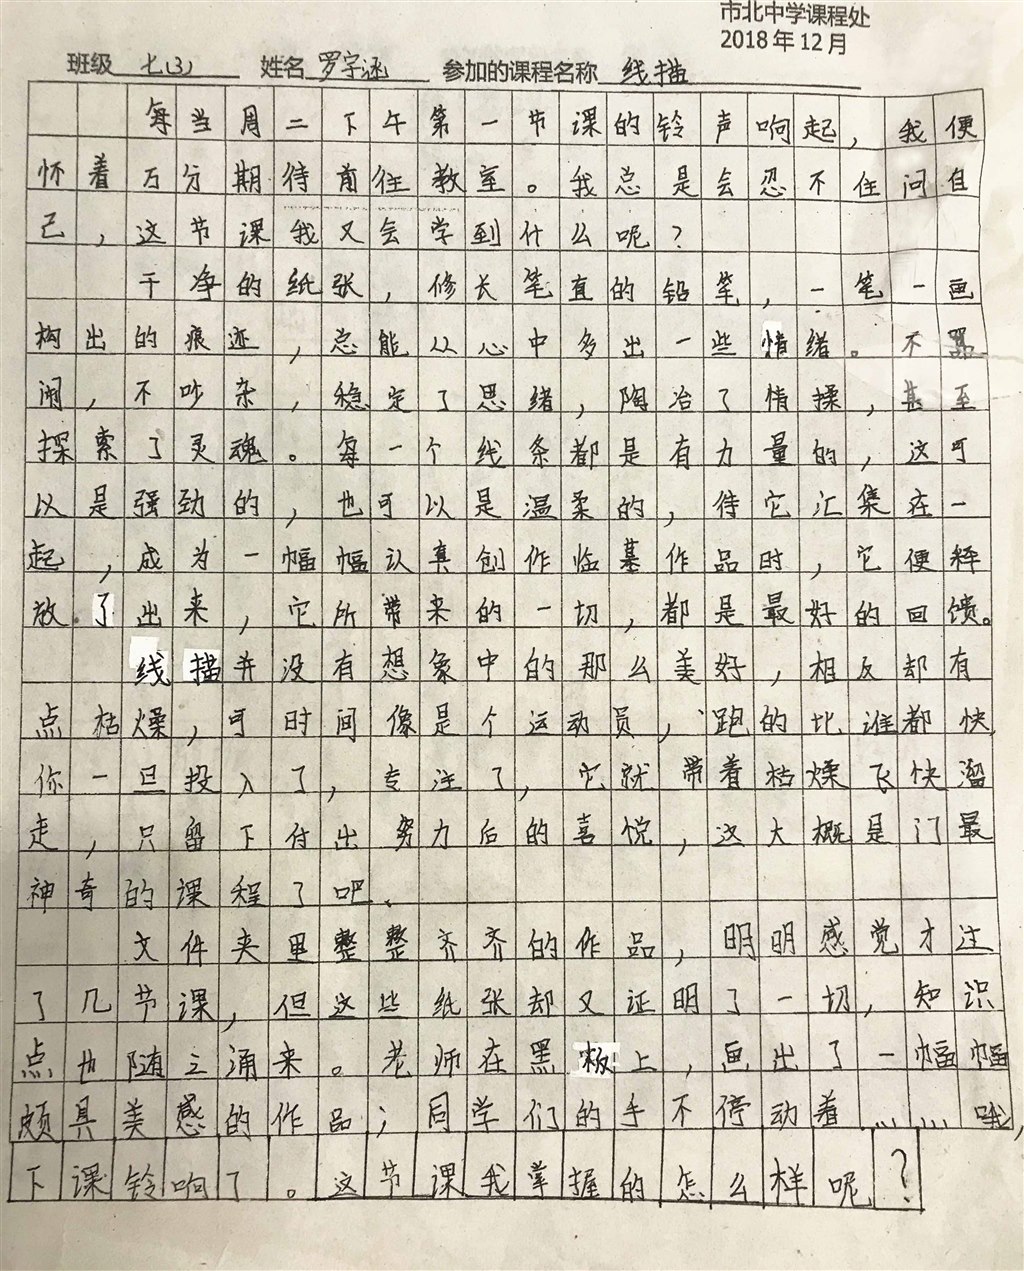 市北中学课程处
2018年12月
班级 七(3) 姓名 罗宇涵 参加的课程名称 线描
每当周二下午第一节课的铃声响起，我便
怀着万分期待前往教室。我总是会忍不住问自
己，这节课我又会学到什么呢？
干净的纸张，修长笔直的铅笔，一笔一画
构出的痕迹，总能从心中多出一些情绪。不嚣
闹，不吵杂，稳定了思绪，陶冶了情操，甚至
探索了灵魂。每一个线条都是有力量的，这可
以是强劲的，也可以是温柔的，待它汇集在一
起，成为一幅幅认真创作临摹作品时，它便释
放了出来，它所带来的一切，都是最好的回馈。
线描并没有想象中的那么美好，相反却有
点枯燥，可时间像是个运动员，跑的比谁都快，
你一旦投入了，专注了，它就带着枯燥飞快溜
走，只留下付出努力后的喜悦，这大概是门最
神奇的课程了吧、
文件夹里整整齐齐的作品，明明感觉才注
了几节课，但这些纸张却又证明了一切，知识
点也随之涌来。老师在黑板上，画出了一幅幅
颇具美感的作品；同学们的手不停动着……哦，
下课铃响了。这节课我掌握的怎么样呢？